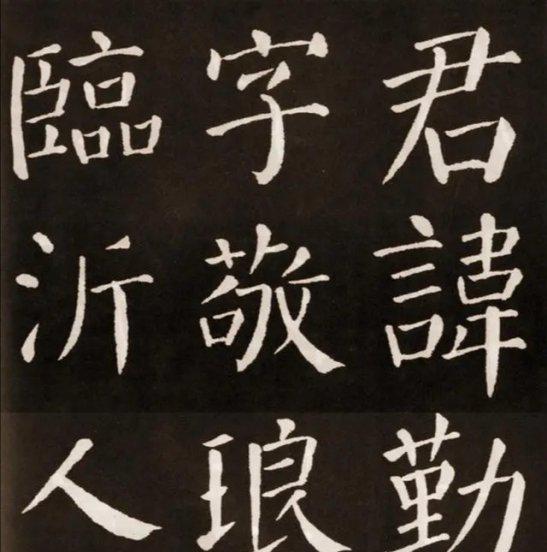 君諱勤
字敬琅
臨沂人